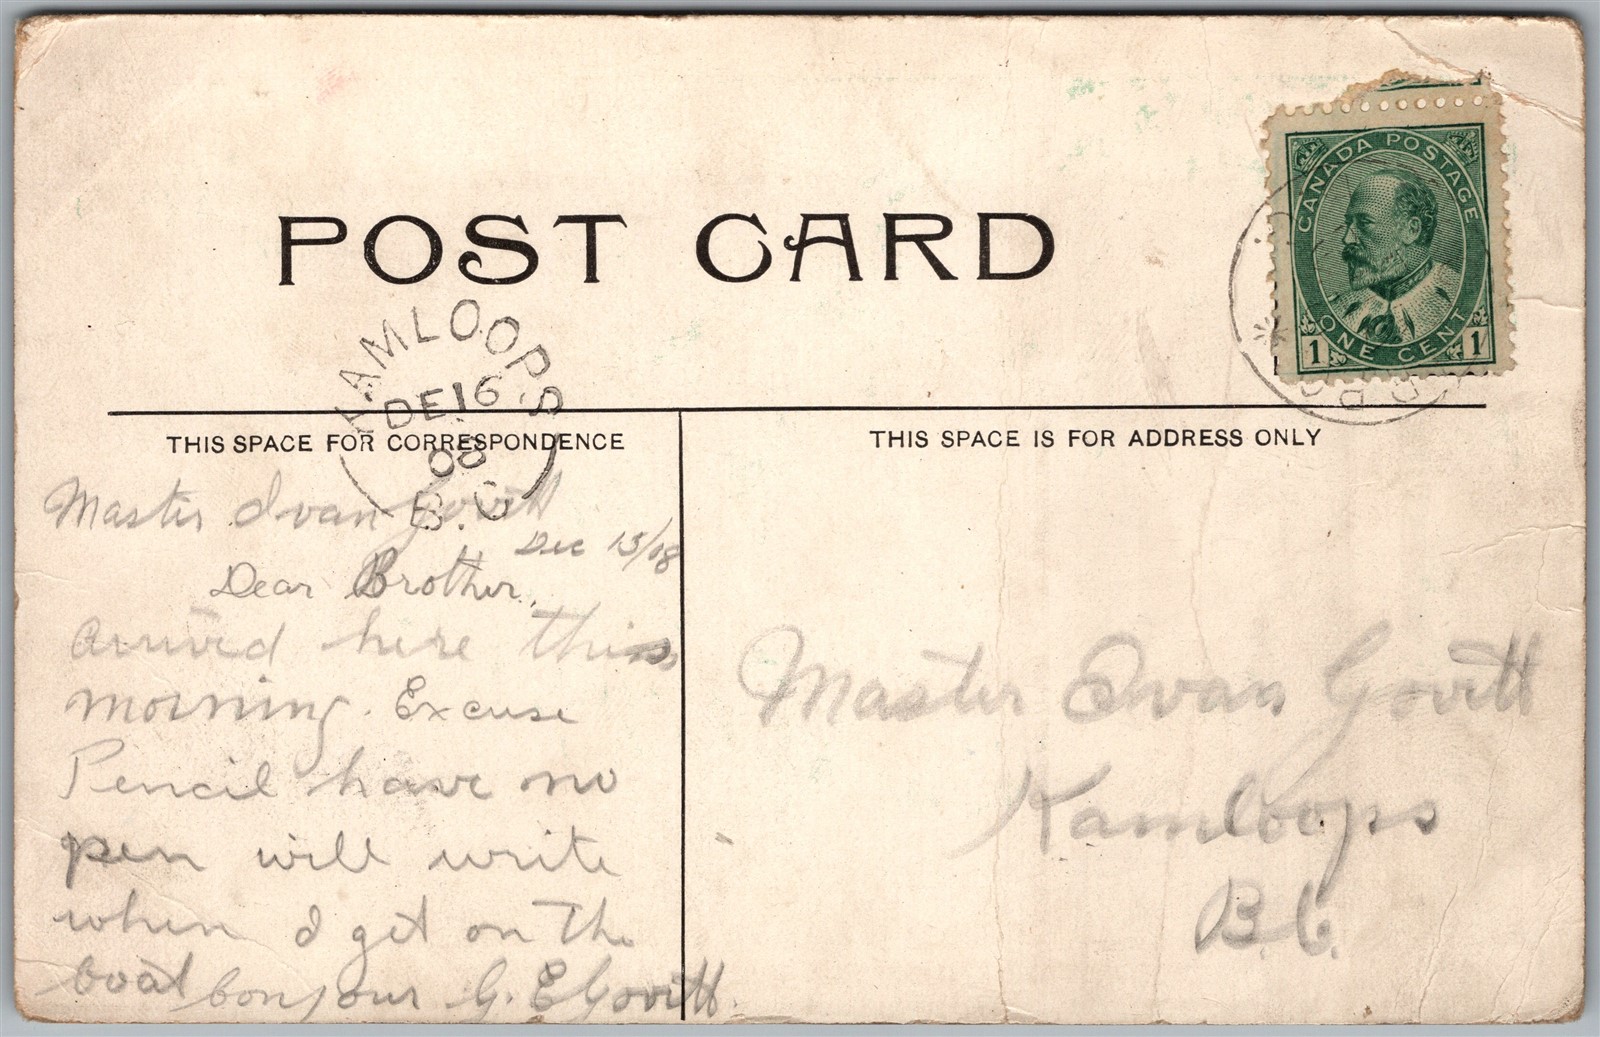 POST CARD
CANADA POSTAGE
ONE CENT
1 1
KAMLOOPS
DE 16
08
B.C
THIS SPACE FOR CORRESPONDENCE
THIS SPACE IS FOR ADDRESS ONLY
Master Ivan Govitt
Dec 15/08
Dear Brother,
arrived here this
morning. Excuse
Pencil have no
pen will write
when I get on the
boat bonjour G. E Govitt.
Master Ivan Govitt
Kamloops
B.C.